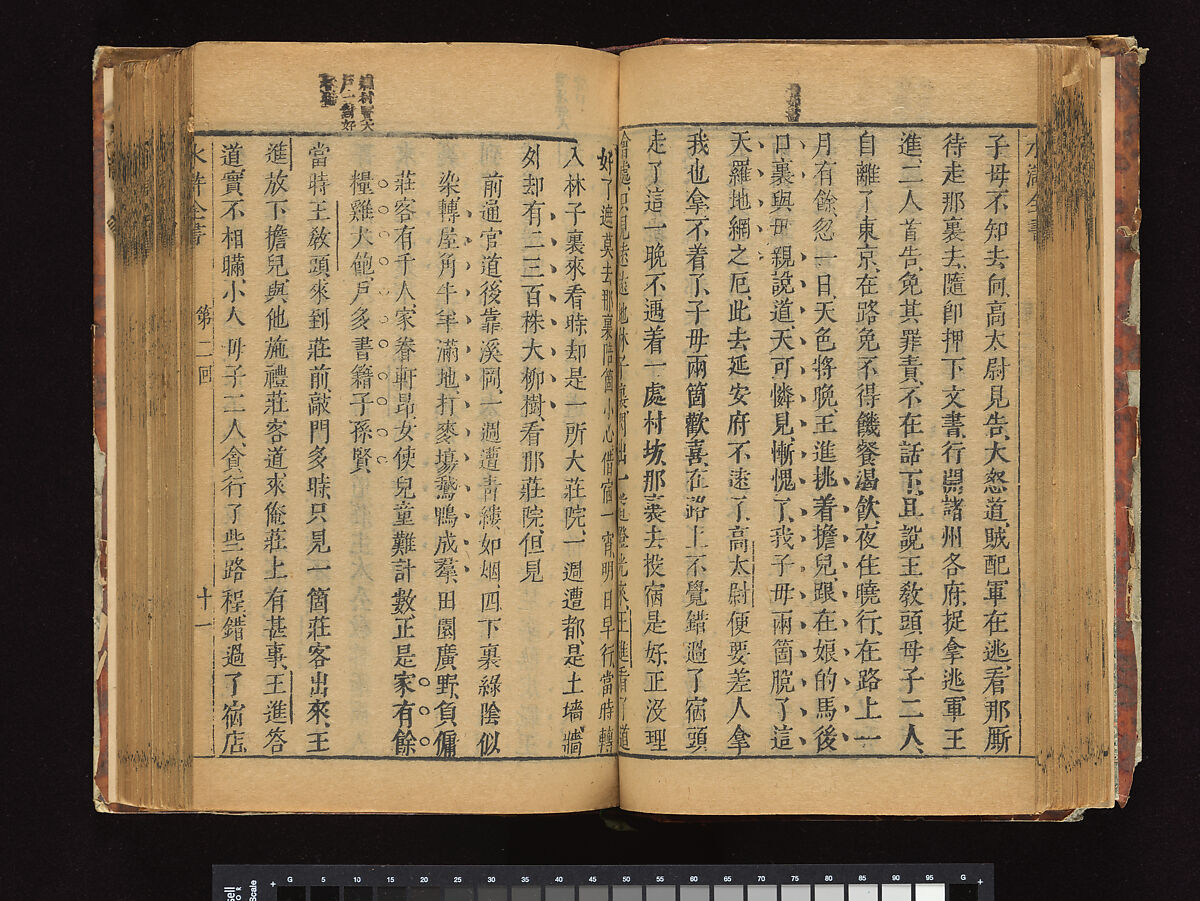 水滸全書
子母不知去向高太尉見告大怒道賊配軍在逃看那厮
待走那裏去隨卽押下文書行開諸州各府捉拿逃軍王
進二人首告免其罪責不在話下且說王教頭母子二人
自離了東京在路免不得饑餐渴飲夜住曉行在路上一
月有餘忽一日天色將晚王進挑着擔兒跟在娘的馬後
口裏與母親說道天可憐見慚愧了我子母兩箇脫了這
天羅地網之厄此去延安府不遠了高太尉便要差人拿
我也拿不着了子母兩箇歡喜在路上不覺錯過了宿頭
走了這一晚不遇着一處村坊那裏去投宿是好正没理
會處只見遠遠地林子裏閃出一道燈光來王進看了道
好了遮莫去那裏陪箇小心借宿一宵明日早行當時轉
入林子裏來看時却是一所大莊院一週遭都是土墻牆
外却有二三百株大柳樹看那莊院但見
前通官道後靠溪岡一週遭青縷如烟四下裏綠陰似
染轉屋角牛羊滿地打麥場鵞鴨成羣田園廣野負傭
莊客有千人家眷軒昂女使兒童難計數正是家有餘
糧雞犬飽戶多書籍子孫賢
當時王教頭來到莊前敲門多時只見一箇莊客出來王
進放下擔兒與他施禮莊客道來俺莊上有甚事王進答
道實不相瞞小人母子二人貪行了些路程錯過了宿店
水滸全書 第二回 十一